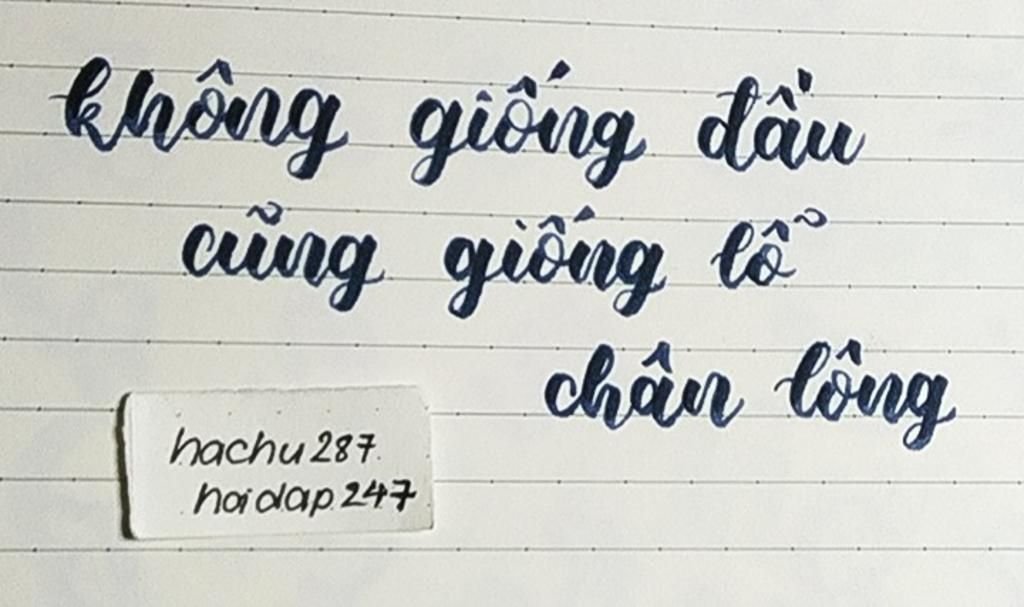 không giống đầu
cũng giống lổ
chân lông
hachu287.
hoidap247